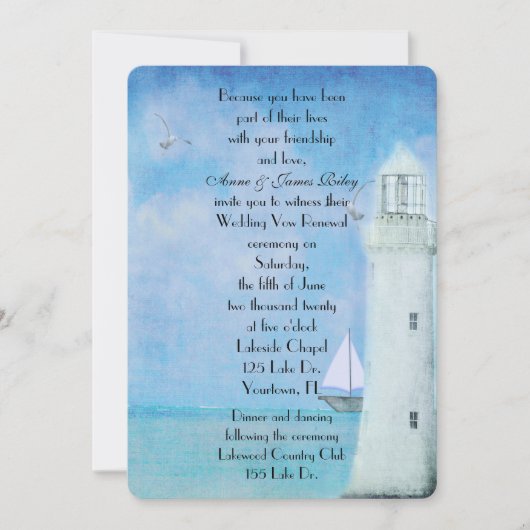 Because you have been
part of their lives
with your friendship
and love,
Anne & James Riley
invite you to witness their
Wedding Vow Renewal
ceremony on
Saturday,
the fifth of June
two thousand twenty
at five o'clock
Lakeside Chapel
125 Lake Dr.
Yourtown, FL
Dinner and dancing
following the ceremony
Lakewood Country Club
155 Lake Dr.